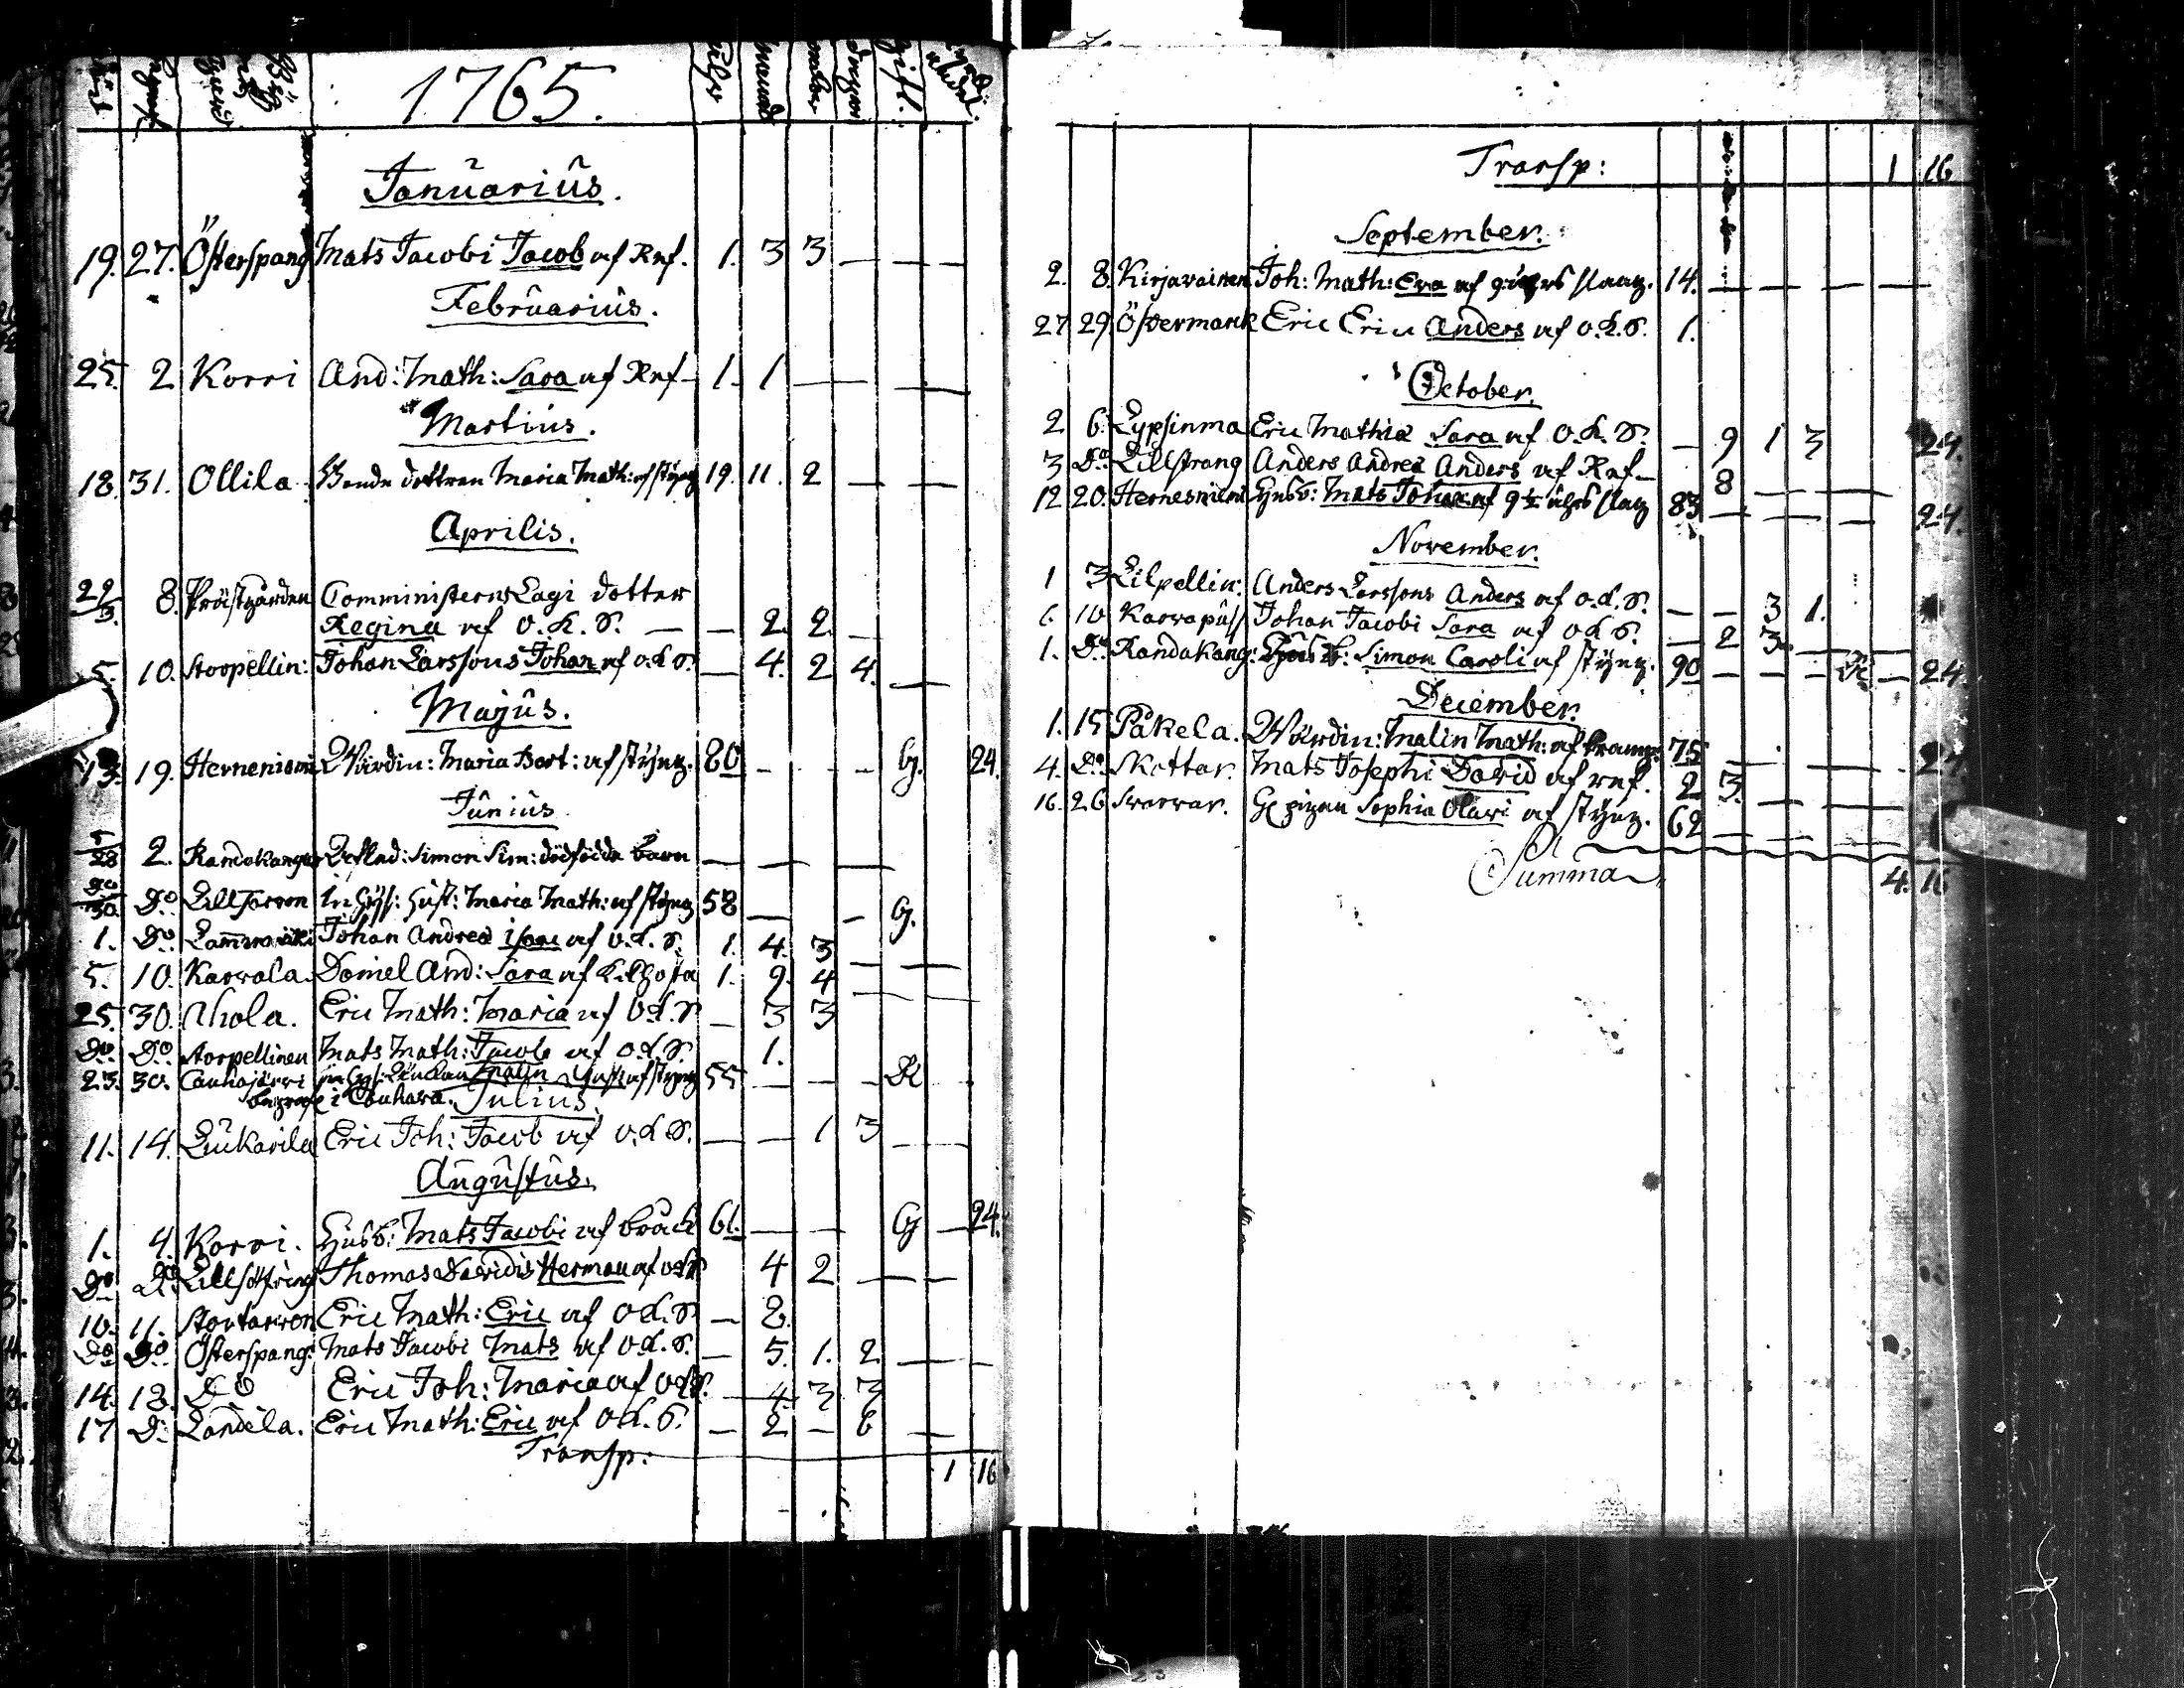 1765.
Januarius.
19. 27. Österspang Mats Jacobi Jacob af Rnf. 1. 3 3 — — —
Februarius.
25. 2 Korri And: Math: Sara af Rnf — 1. 1 — — — —
Martius.
18. 31. Ollila Bonde dottren Maria Math: af styng 19. 11. 2 — —
Aprilis.
22/3. 8. Prästgården Comministerns Lagi dotter
Regina af O.K.S. — — 2. 2. —
5. 10. Storpellin: Johan Larssons Johan af o.k.S. — 4. 2 4. —
Majus.
13. 19. Herneniemi Wärdin: Maria Bert: af styng. 80 — — G. 24.
Junius
5/28 2. Randakangas Aflad: Simon Sim: dödfödde barn — — —
Do/30. Do Lilltorron Inhys: Hust: Maria Math: af styng 58 — — G.
1. Do Johan Andreæ Isaac af o.k.S. 1. 4. 3 — —
5. 10. Karvala Daniel And: Sara af K.Hosta 1. 9. 4 — —
25. 30. Uhola. Eric Math: Maria af O.k.S — 3 3
Do Do Storpellinen Mats Math: Jacob af O.k.S. 1.
23. 30. Cauhajärvi inhys: Änckan Malin af styng 55 — — — R
begrafn i Cauhava. Julius.
11. 14. Luukarila Eric Joh: Jacob af O.k.S. — — 1 3 —
Augustus.
1. 4. Korri. Husb: Mats Jacobi af bråck 61. — — G — 24.
Do Do Thomas Davidis Herman af okS 4 2 — —
10. 11. Stortorron Eric Math: Eric af O.k.S. — 2.
Do Do Österspang: Mats Jacobi Mats af O.k.S. — 5. 1. 2 — —
14. 18. Do Eric Joh: Maria af o.k.S. — 4. 3 3
17 D: Landela. Eric Math: Eric af O.k.S. — 2 — 6 —
Transp: 1 16
Transp: 1 16
September.
2. 8. Kirjavainen Joh: Math: Eva af slaag. 14. — — — —
27 29. Östermark Eric Erici Anders af o.k.S. 1.
October.
2. 6. Lypsinma Eric Mathiæ Sara af O.k.S. — 9 1 3 24.
3 Do Lillstrang Anders Andreæ Anders af Rnf — 8 — — —
12 20. Hernesniemi Husb: Mats Johan af 9½ åhrs slag 83 — — — 24.
November.
1 3 Lilpellin: Anders Larssons Anders af o.k.S. — — 3 1.
6. 10 Karvapuss Johan Jacobi Sara af o.k.S. — 2 3 — —
1. Do Randakang: Husb: Simon Caroli af styng. 90 — — — R — 24.
December.
1. 15 Påkela. Wärdin: Malin Math: af kramp. 75 — — — 24
4. Do Skottar. Mats Josephi David af rnf. 2 3. — — —
16. 26 Svarvar. G pigan Sophia Olavi af styng. 62 — — —
Summa 4. 16